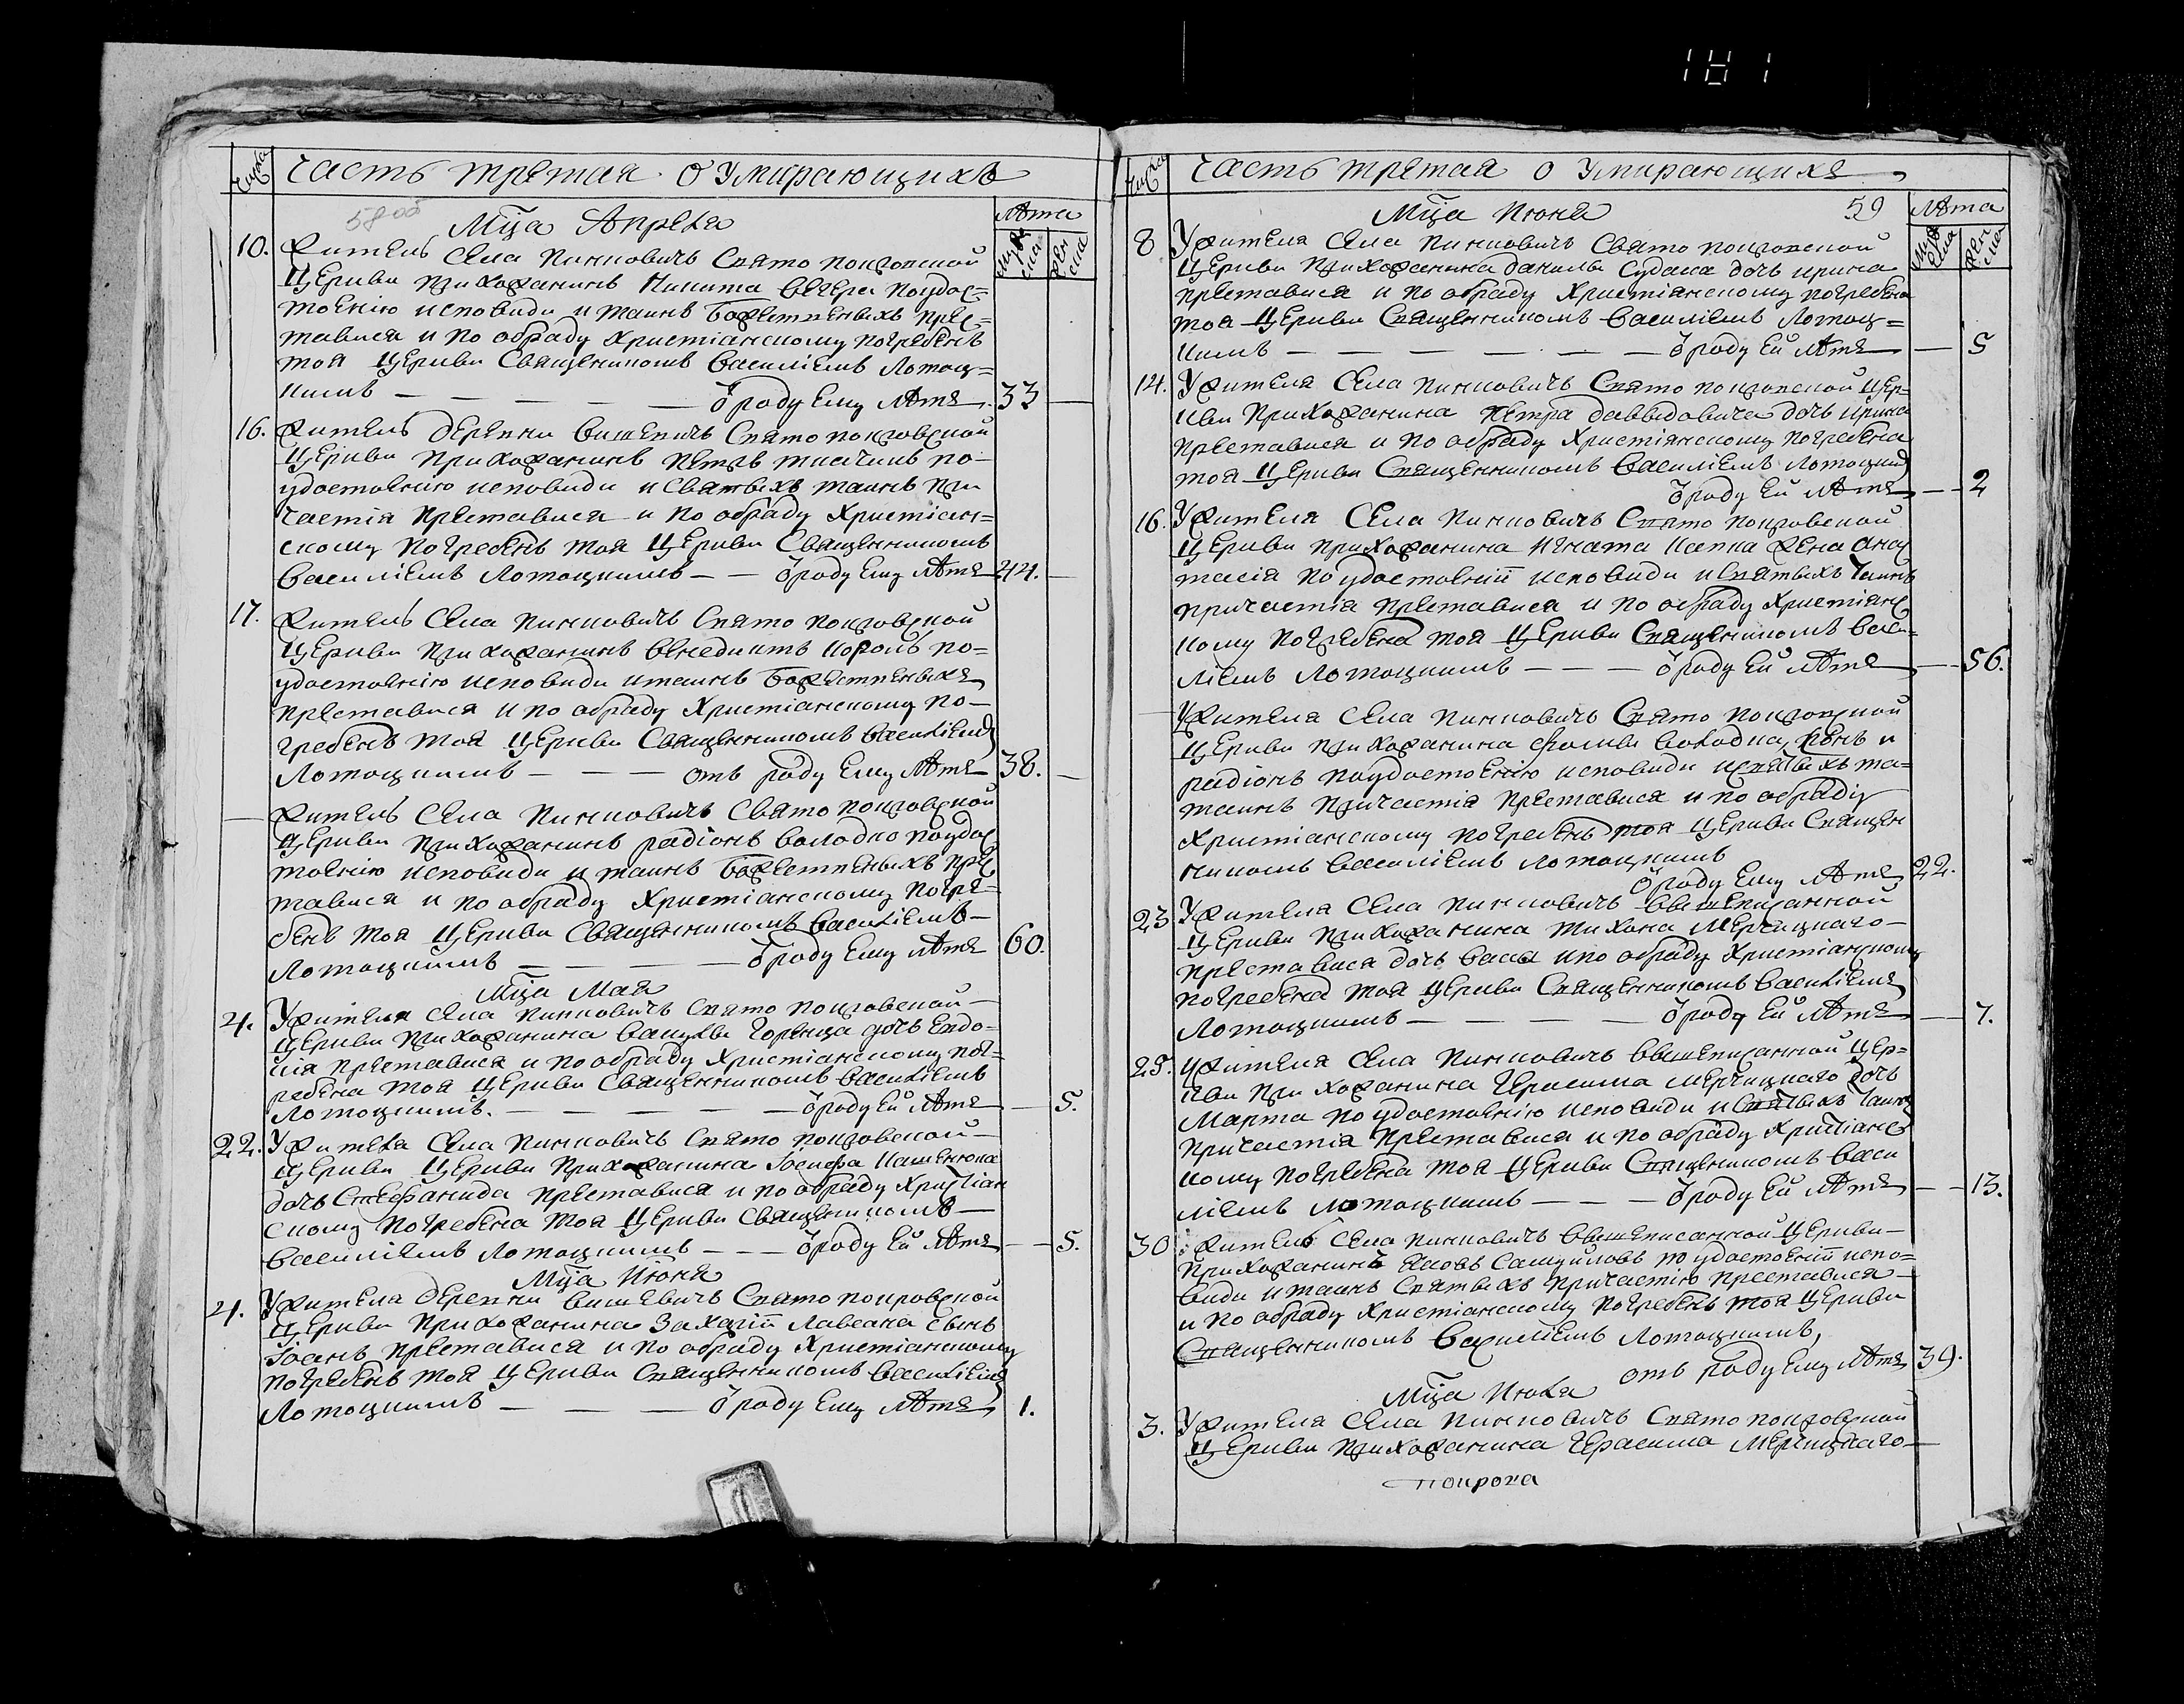 181
Числа
Часть третая о Умирающихъ
58 об
Мца Апреля
Лѣта
Мужеска
Женска
10. Житель Села Пинковичъ Свято покровской
Церкви прихожанинъ Никита Вечера поудос=
тоенію исповиди и таинъ Божественыхъ прес=
тавися и по обряду христіанскому погребенъ
тоя Церкви Священикомъ Василіемъ Лотоц=
кимъ — — — — — ѿроду Ему Лѣтъ 33 —
16. Житель деревни Вишевичъ Свято покровской
Церкви прихожанинъ Петръ по-
удостоенію исповиди и Святыхъ таинъ при
частія преставися и по обряду Христіан=
скому погребенъ тоя Церкви Священникомъ
Василіемъ Лотоцкимъ — — ѿроду Ему Лѣтъ 44. —
17. Житель Села Пинковичъ Свято покровской
Церкви прихожанинъ Венедиктъ Король по=
удостоенію исповиди и таинъ Божественыхъ
преставися и по обряду Христіанскому по-
гребенъ тоя Церкви Священникомъ Василіемъ
Лотоцкимъ — — — отъ роду Ему Лѣтъ 38. —
— Житель Села Пинковичъ Свято покровской
Церкви прихожанинъ радіонъ Володко поудос
тоенію исповиди и таинъ Божественыхъ прес
тавися и по обряду Христіанскому погре=
бенъ тоя Церкви Священникомъ Василіемъ—
Лотоцкимъ — — — — ѿроду Ему Лѣтъ 60.
Мца Мая
4. Ужителя Села Пинковичъ Свято покровской—
Церкви прихожанина Горенца дочь Евдо=
кія преставися и по обряду Христіанскому пог=
ребена тоя Церкви Священникомъ Василіемъ
Лотоцкимъ. — — — — — ѿроду Ей Лѣтъ — 5.
22. Ужителя Села Пинковичъ Свято покровской—
Церкви Церкви прихожанина Іосифа
дочь Стефанида преставися и по обряду Христіан
скому погребена тоя Церкви Священикомъ—
Василіемъ Лотоцкимъ — — ѿроду Ей Лѣтъ — 5.
Мца Июня
4. Ужителя деревни Вишевичъ Свято покровской
Церкви прихожанина Захаріи сынъ
Іоанъ преставися и по обряду Христіанскому
погребенъ тоя Церкви Священникомъ Василіемъ
Лотоцкимъ — — — ѿроду Ему Лѣтъ 1.
Числа
Часть третая о Умирающихъ
Мца Июня 59
Лѣта
Мужеска
Женска
8 Ужителя Села Пинковичъ Свято покровской
Церкви прихожанина данилы Судака дочь ирина
преставися и по обряду Христіянскому погребена
тоя Церкви Священникомъ Василіемъ Лотоц=
кимъ — — — — — — ѿроду Ей Лѣтъ — 5
14. Ужителя Села Пинковичъ Свято покровской Цер=
кви прихожанина Петра давыдовича дочь ирина
преставися и по обряду Христіянскому погребена
тоя Церкви Священникомъ Василіемъ Лотоцким
ѿроду Ей Лѣтъ — 2
16. Ужителя Села Пинковичъ Свято покровской
Церкви прихожанина Игната жена Анас
тасія по удостоеніи исповиди и Святыхъ Таинъ
причастія преставися и по обряду Христіянс
кому погребена тоя Церкви Священникомъ Васи=
ліемъ Лотоцкимъ — — — ѿроду Ей Лѣтъ — 56.
— Ужителя Села Пинковичъ Свято покровской
Церкви прихожанина Фомы Володка, сынъ
радіонъ поудостоенію исповиди и святыхъ та=
таинъ причастія преставися и по обряду
Христіанскому погребенъ тоя Церкви Священ
никомъ Василіемъ Лотоцкимъ
ѿроду Ему Лѣтъ 22.
23 Ужителя Села Пинковичъ вышеписанной
Церкви прихожанина тихона Мерчицкаго—
преставися дочь Васа и по обряду Христіанскому
погребена тоя Церкви Священникомъ Василіемъ
Лотоцкимъ — — — — ѿроду Ей Лѣтъ — 7.
25. Ужителя Села Пинковичъ вышеписанной Цер=
кви прихожанина Герасима Мерчицкаго дочь
Марта по удостоенію исповиди и Святыхъ Таинъ
причастія преставися и по обряду Христіанс
кому погребена тоя Церкви Священикомъ Васи
ліемъ Лотоцкимъ — — — ѿроду Ей Лѣтъ — 13.
30 Житель Села Пинковичъ вышеписанной Церкви—
прихожанинъ Яковъ Самуиловъ по удостоеніи испо=
види и таинъ Святыхъ причастію преставися—
и по обряду Христіанскому погребенъ тоя Церкви
Священникомъ Василіемъ Лотоцкимъ,
отъ роду Ему Лѣтъ 39.
Мца Июля
3. Ужителя Села Пинковичъ Свято покровской
Церкви прихожанина Герасима Мерчицкаго—
покрова